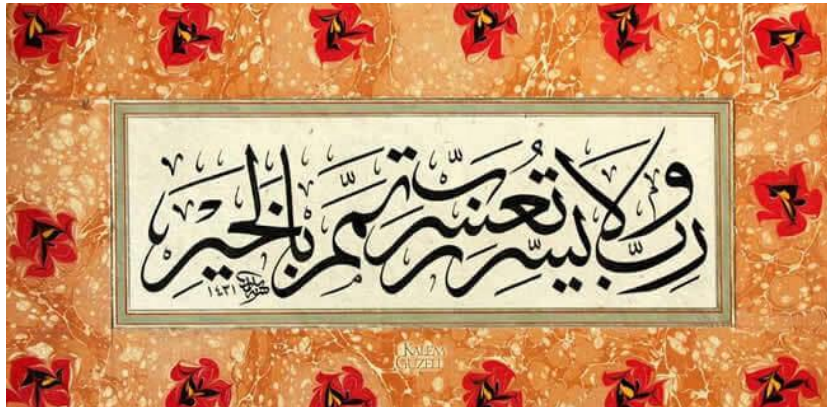 رب يسر ولا تعسر رب تمم بالخير
١٤٣١
KALEM GÜZELİ